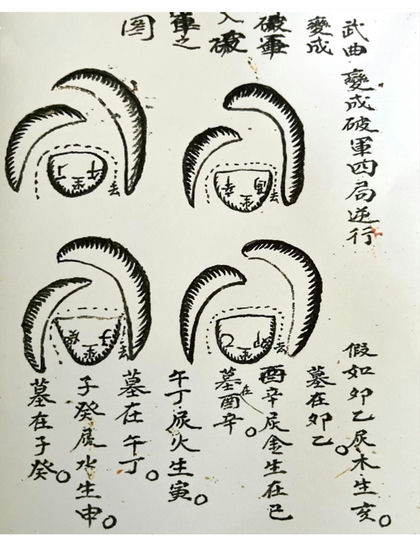 武曲變成破軍四局逆行
變成
破軍
入破
軍之
圖
去
去
去
去
假如卯乙属木生亥。
墓在卯乙。
酉辛属金生在巳
墓在酉辛。
午丁属火生寅。
墓在午丁。
子癸属水生申。
墓在子癸。